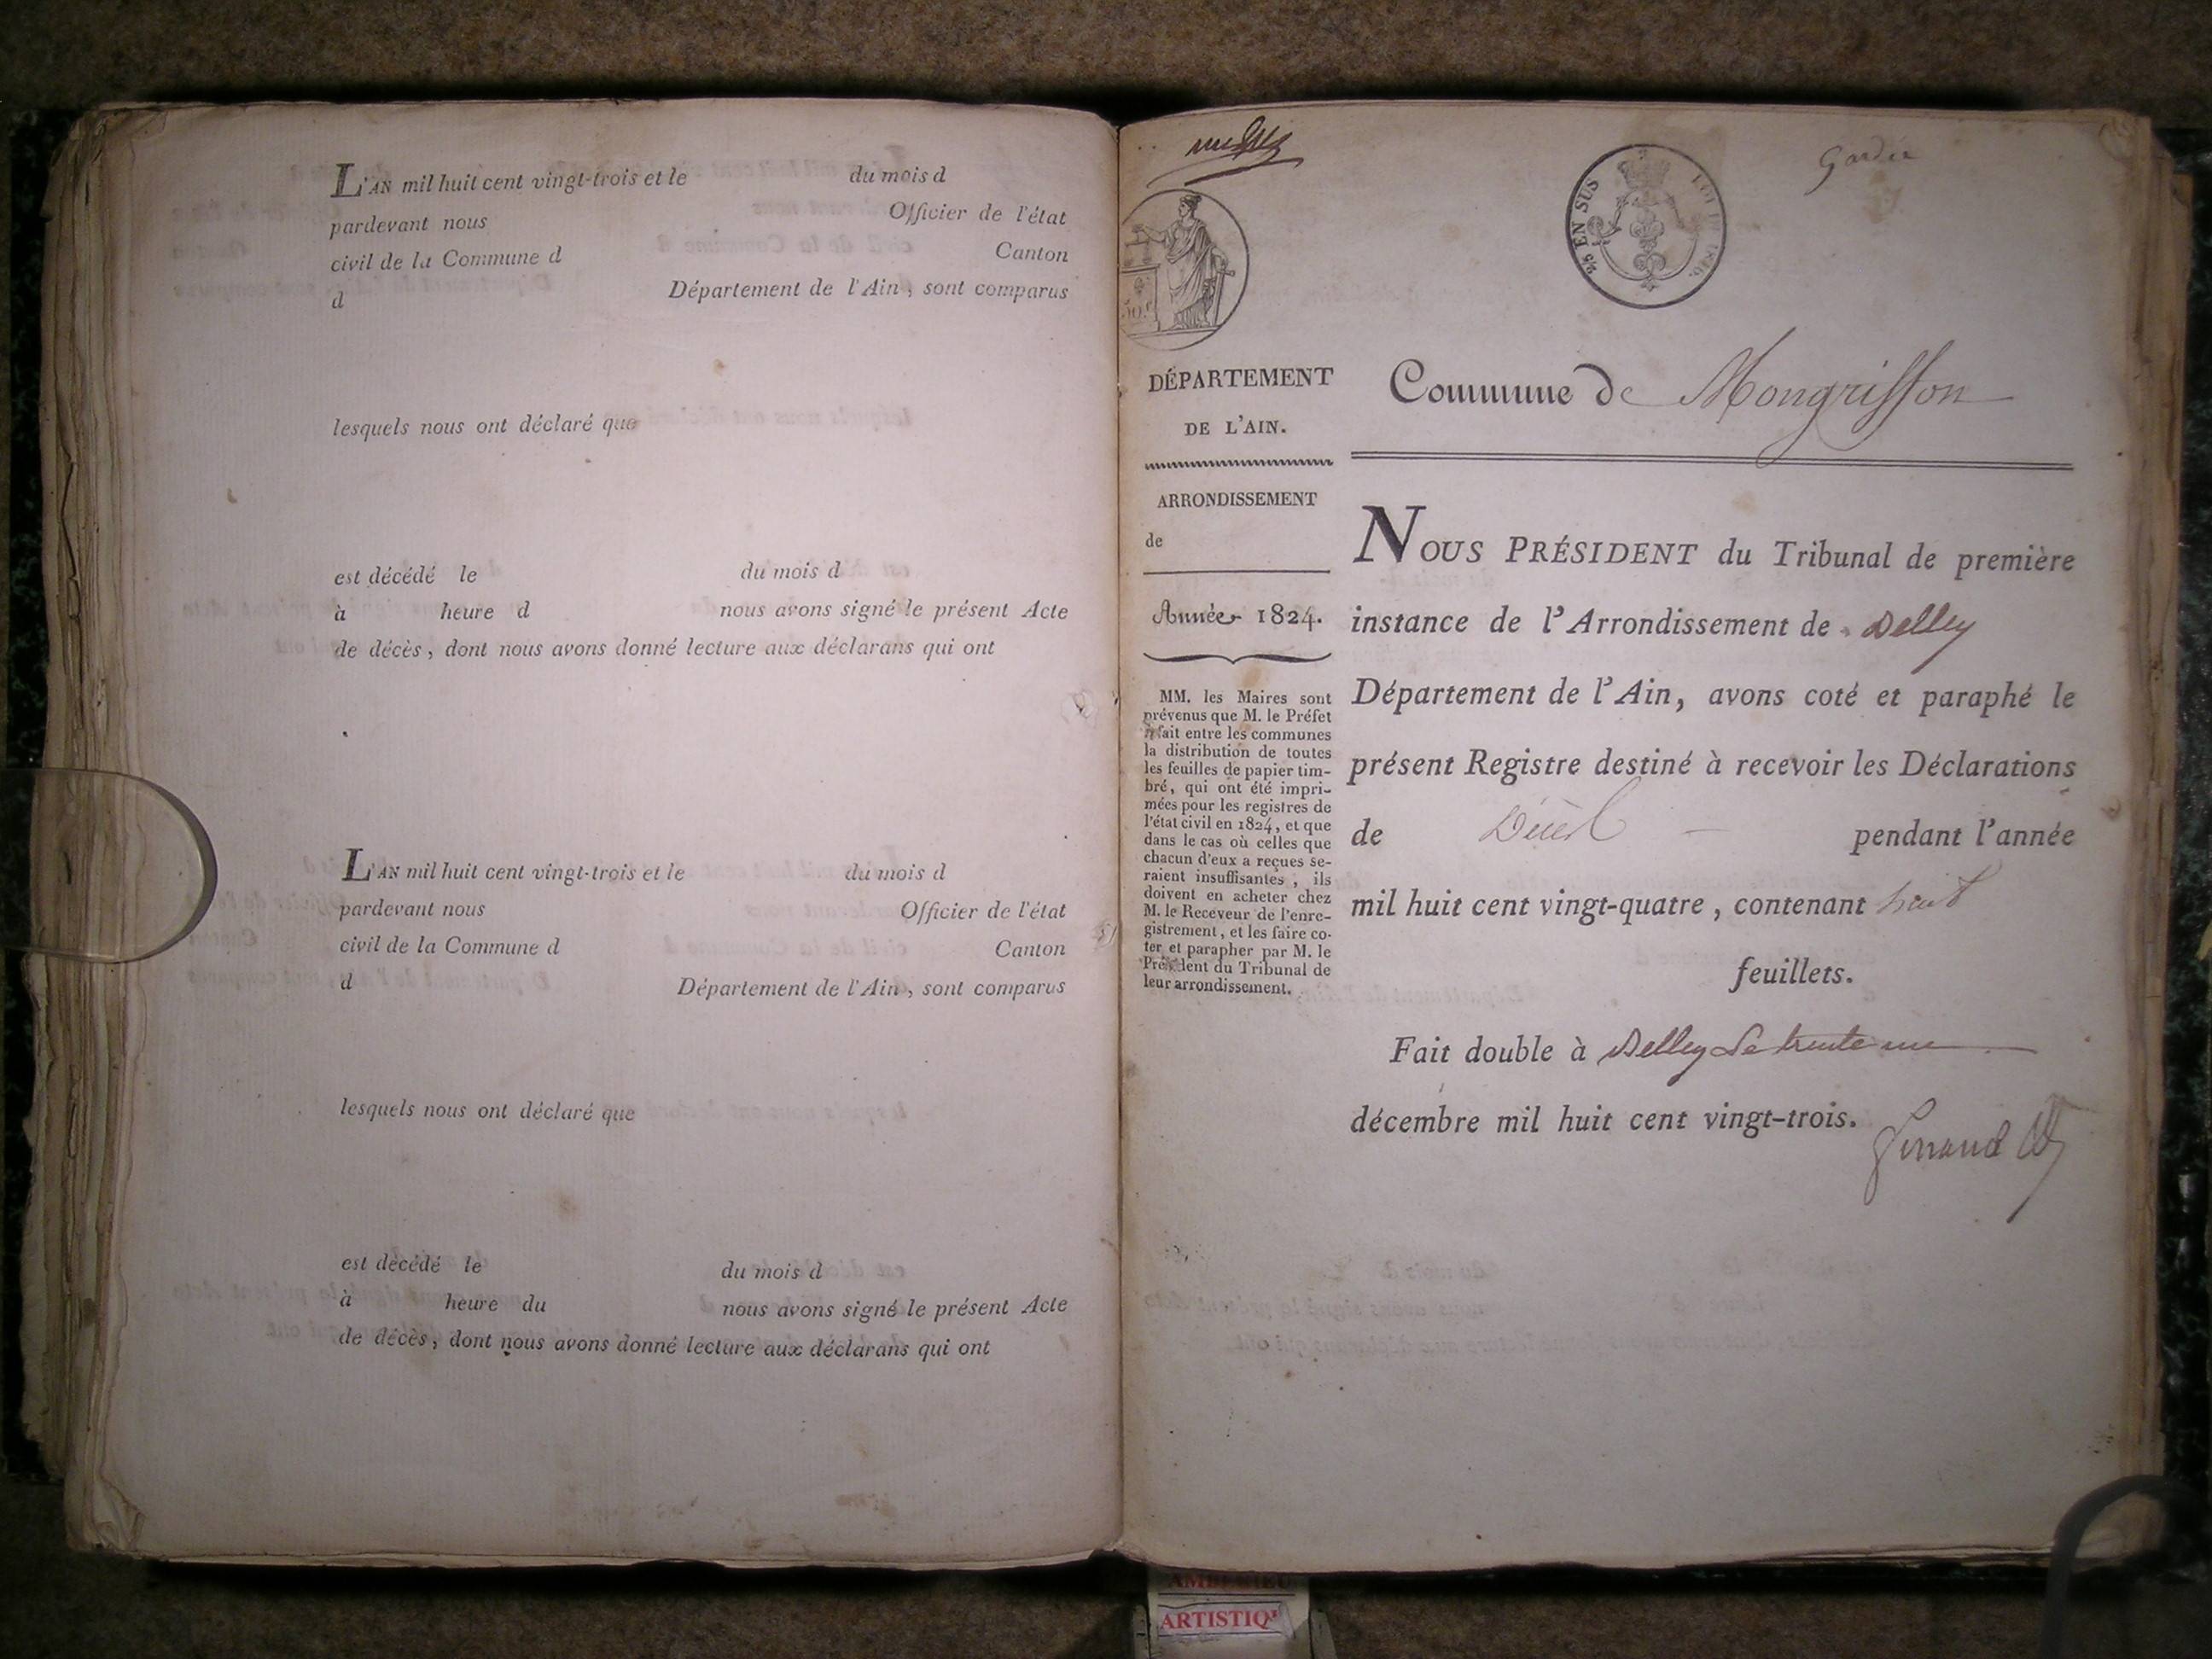 L'AN mil huit cent vingt-trois et le du mois d
pardevant nous Officier de l'état
civil de la Commune d Canton
d Département de l'Ain, sont comparus
lesquels nous ont déclaré que
est décédé le du mois d
à heure d nous avons signé le présent Acte
de décès, dont nous avons donné lecture aux déclarans qui ont
L'AN mil huit cent vingt-trois et le du mois d
pardevant nous Officier de l'état
civil de la Commune d Canton
d Département de l'Ain, sont comparus
lesquels nous ont déclaré que
est décédé le du mois d
à heure du nous avons signé le présent Acte
de décès, dont nous avons donné lecture aux déclarans qui ont
EN SUS
50.c
DÉPARTEMENT
DE L'AIN.
ARRONDISSEMENT
de
Année 1824.
MM. les Maires sont
prévenus que M. le Préfet
fait entre les communes
la distribution de toutes
les feuilles de papier tim-
bré, qui ont été impri-
mées pour les registres de
l'état civil en 1824, et que
dans le cas où celles que
chacun d'eux a reçues se-
raient insuffisantes, ils
doivent en acheter chez
M. le Receveur de l'enre-
gistrement, et les faire co-
ter et parapher par M. le
Président du Tribunal de
leur arrondissement.
Commune de Mongriffon
NOUS PRÉSIDENT du Tribunal de première
instance de l'Arrondissement de Belley
Département de l'Ain, avons coté et paraphé le
présent Registre destiné à recevoir les Déclarations
de Décès pendant l'année
mil huit cent vingt-quatre, contenant huit
feuillets.
Fait double à Belley le trente un
décembre mil huit cent vingt-trois.
ARTISTIQ